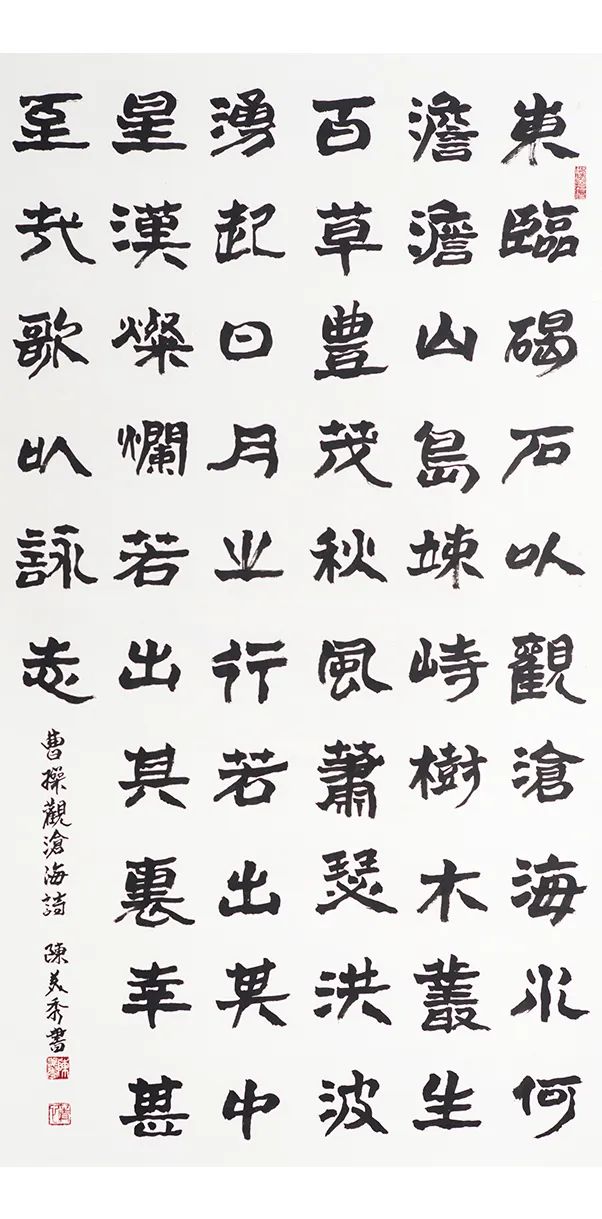 東臨碣石以觀滄海水何
澹澹山島竦峙樹木叢生
百草豐茂秋風蕭瑟洪波
湧起日月之行若出其中
星漢燦爛若出其裏幸甚
至哉歌以詠志
曹操觀滄海詩 陳美秀書